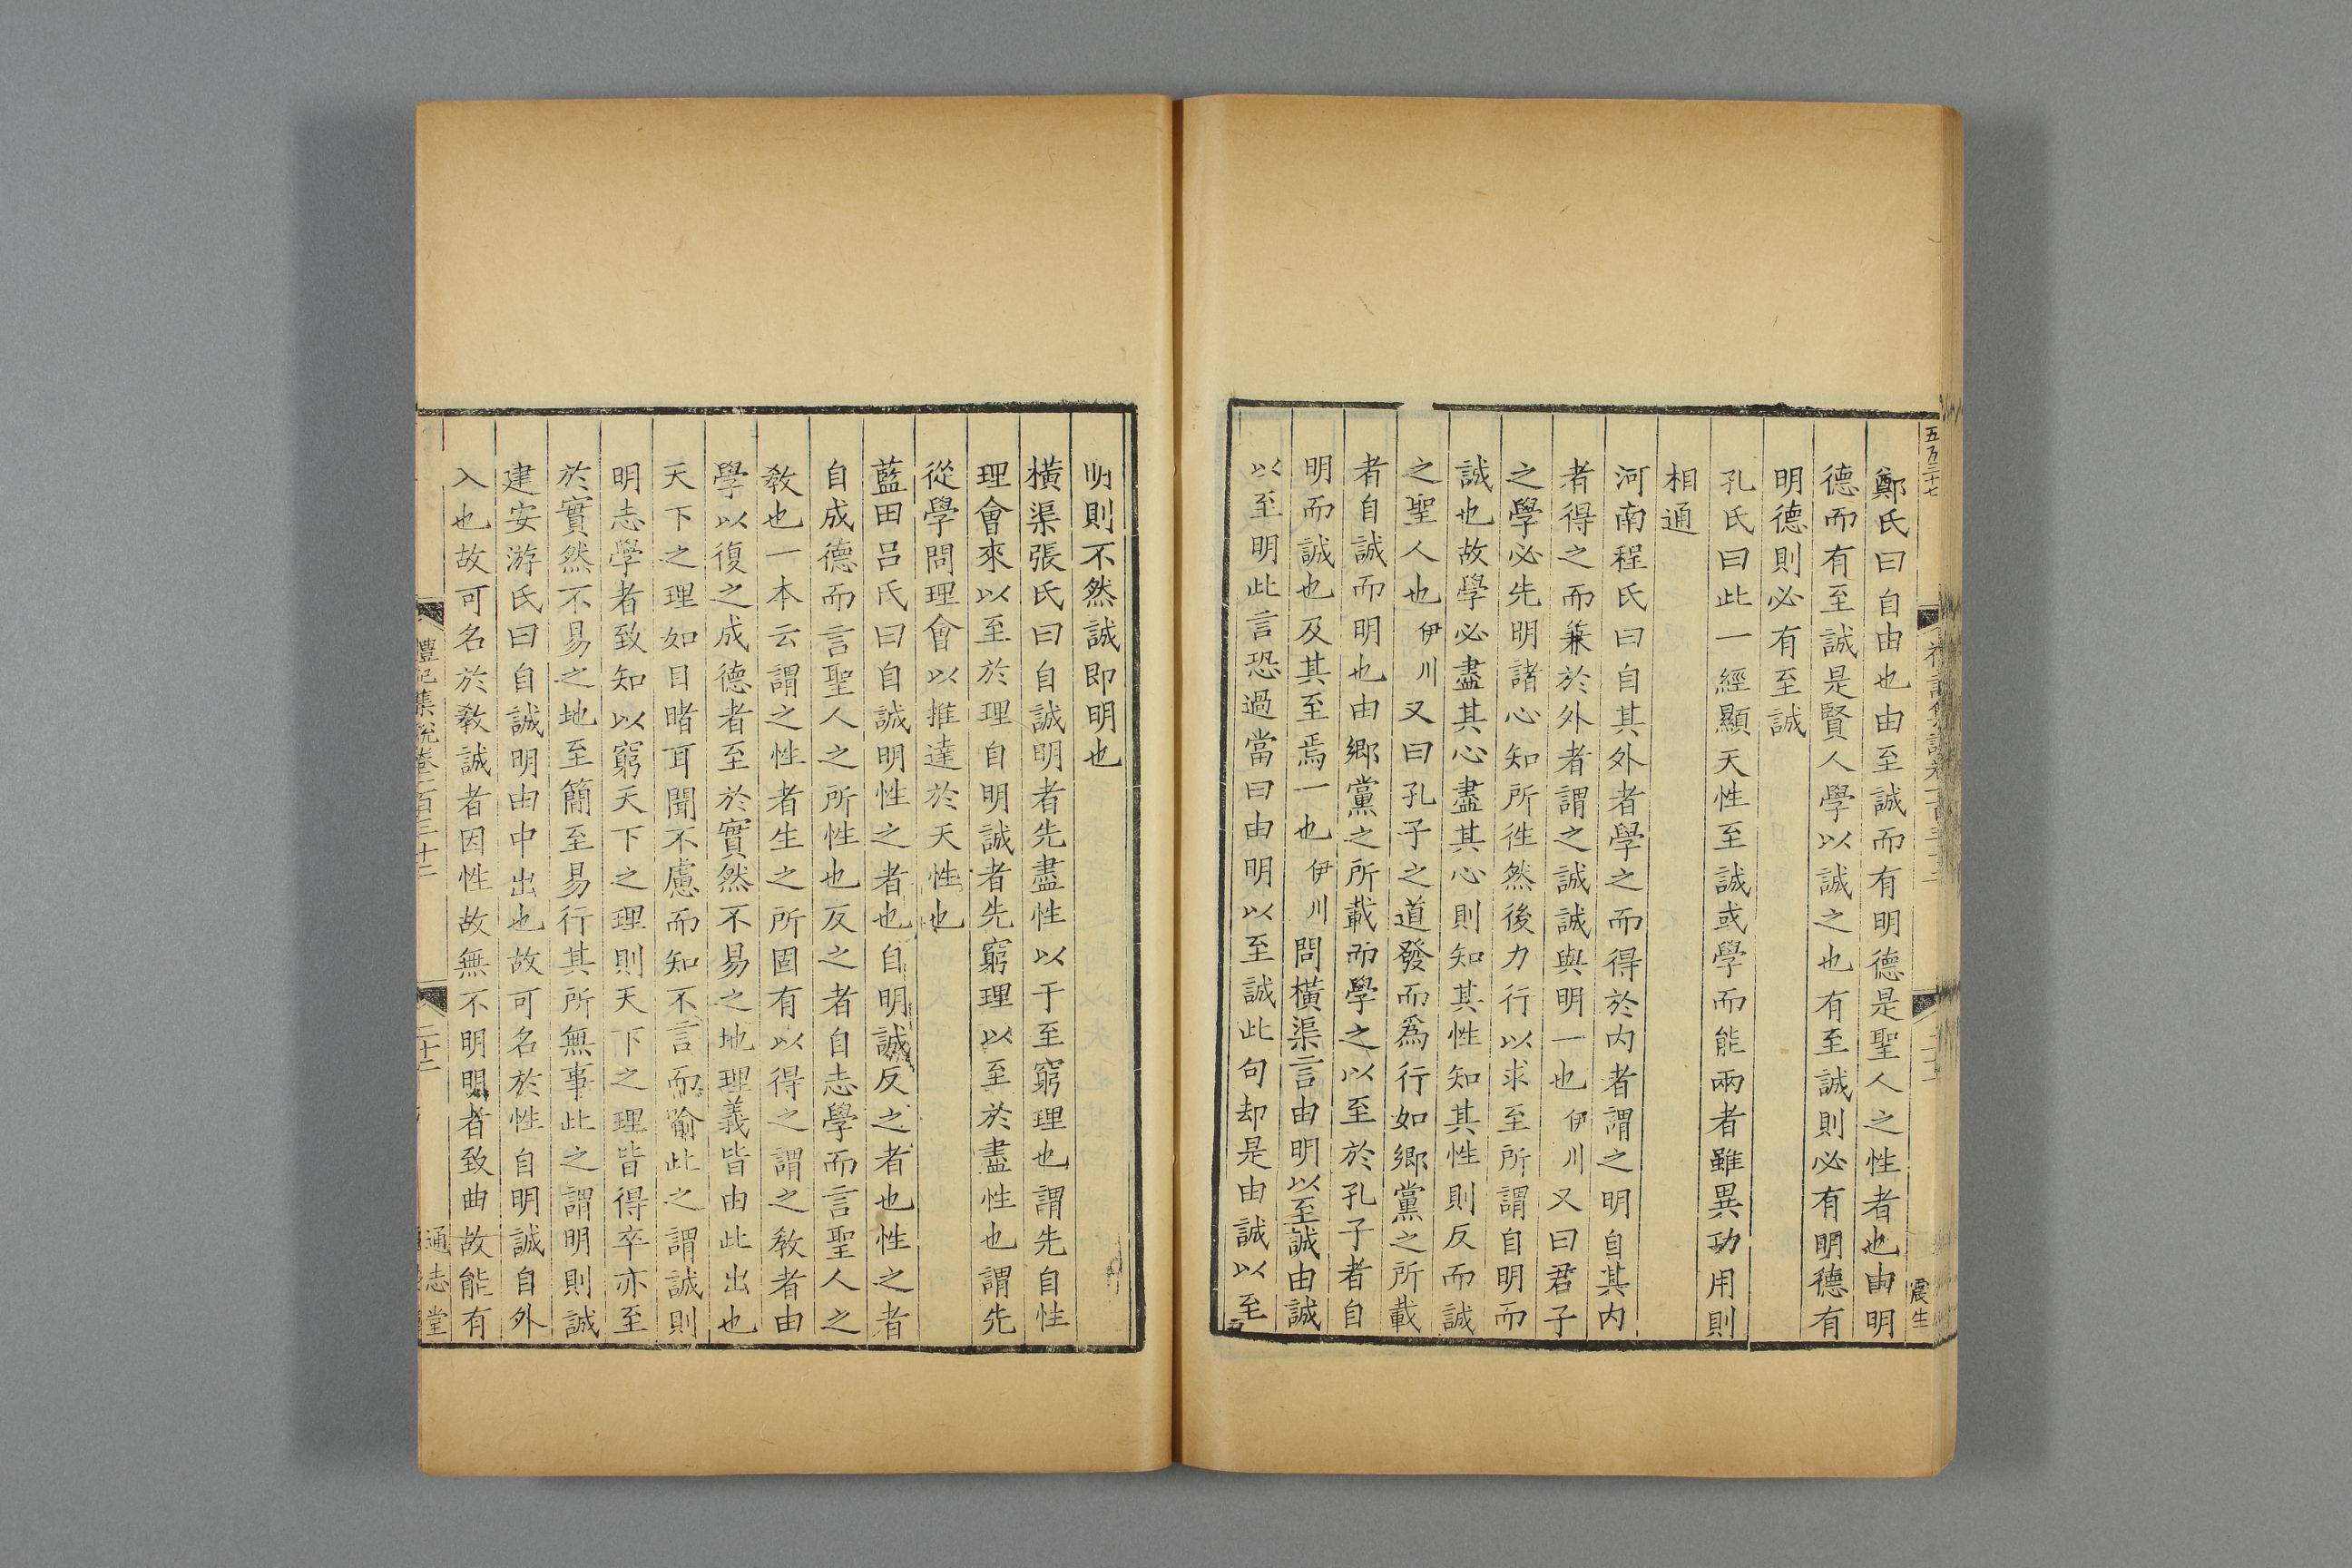 鄭氏曰自由也由至誠而有明德是聖人之性者也由明
德而有至誠是賢人學以誠之也有至誠則必有明德有
明德則必有至誠
孔氏曰此一經顯天性至誠或學而能兩者雖異功用則
相通
河南程氏曰自其外者學之而得於内者謂之明自其内
者得之而兼於外者謂之誠誠與明一也伊川又曰君子
之學必先明諸心知所徃然後力行以求至所謂自明而
誠也故學必盡其心盡其心則知其性知其性則反而誠
之聖人也伊川又曰孔子之道發而爲行如鄉黨之所載
者自誠而明也由鄉黨之所載而學之以至於孔子者自
明而誠也及其至焉一也伊川問橫渠言由明以至誠由誠
以至明此言恐過當曰由明以至誠此句却是由誠以至
明則不然誠即明也
橫渠張氏曰自誠明者先盡性以于至窮理也謂先自性
理會來以至於理自明誠者先窮理以至於盡性也謂先
從學問理會以推達於天性也
藍田呂氏曰自誠明性之者也自明誠反之者也性之者
自成德而言聖人之所性也反之者自志學而言聖人之
敎也一本云謂之性者生之所固有以得之謂之敎者由
學以復之成德者至於實然不易之地理義皆由此出也
天下之理如目睹耳聞不慮而知不言而喻此之謂誠則
明志學者致知以窮天下之理則天下之理皆得卒亦至
於實然不易之地至簡至易行其所無事此之謂明則誠
建安游氏曰自誠明由中出也故可名於性自明誠自外
入也故可名於敎誠者因性故無不明明者致曲故能有
禮記集說卷一百三十二
二十二
通志堂
五百二十七
震生